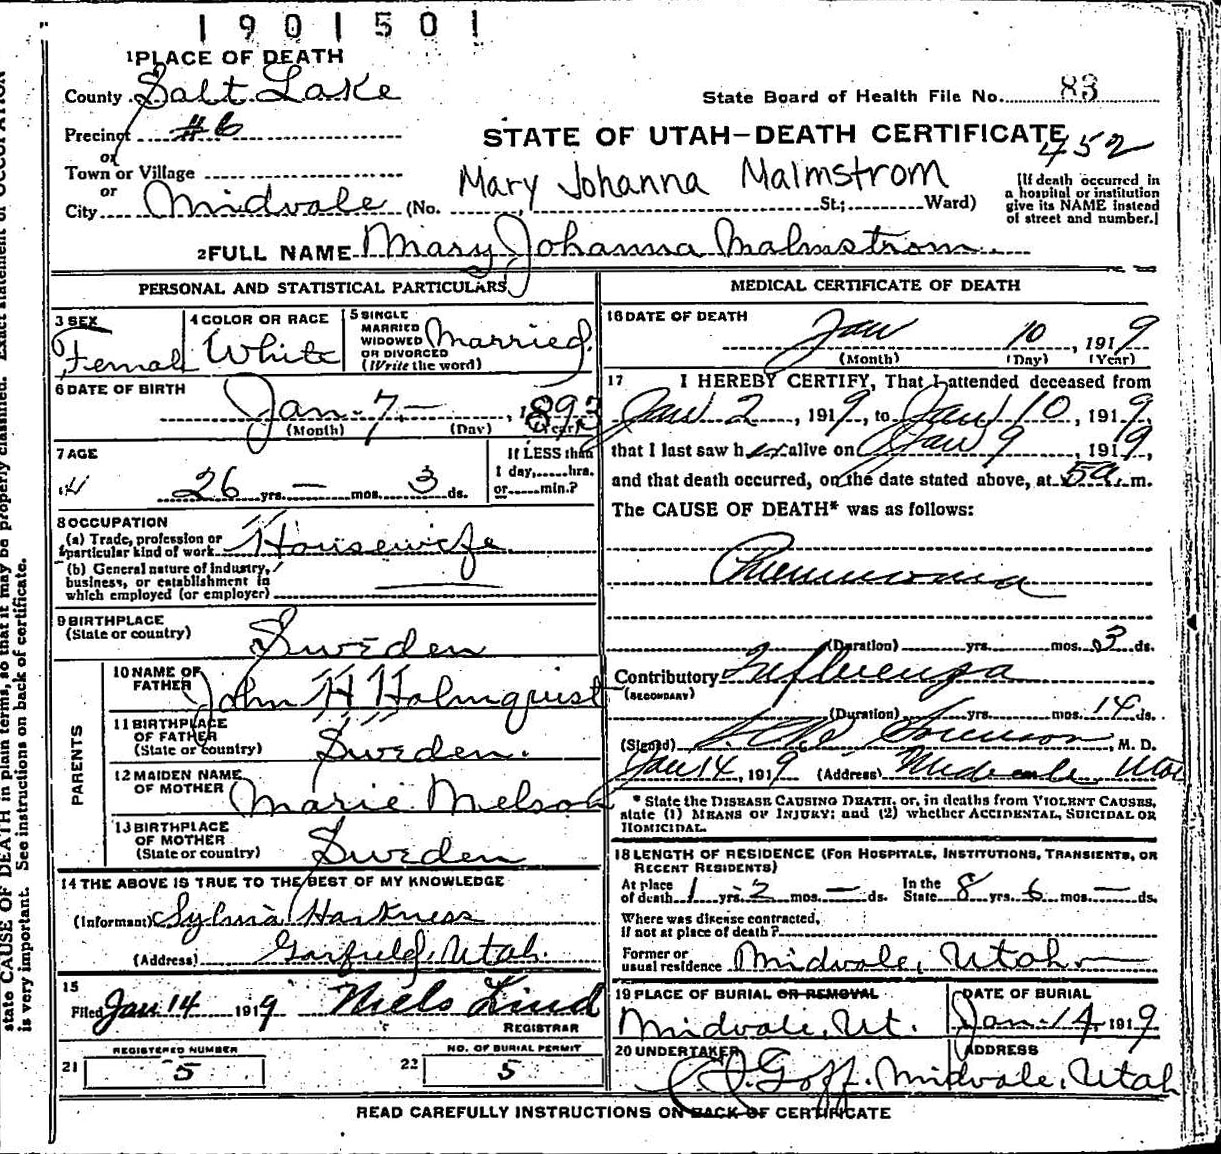 1901501
1 PLACE OF DEATH
County Salt Lake
State Board of Health File No. 83
Precinct #6
or
STATE OF UTAH—DEATH CERTIFICATE
452
Town or Village
or
Mary Johanna Malmstrom
City Midvale (No. St.; Ward)
(If death occurred in
a hospital or institution
give its NAME instead
of street and number.)
2 FULL NAME Mary Johanna Malmstrom
PERSONAL AND STATISTICAL PARTICULARS
3 SEX
Femal
4 COLOR OR RACE
White
5 SINGLE
MARRIED
WIDOWED
OR DIVORCED
(Write the word)
Married
6 DATE OF BIRTH
Jan. 7 — , 1893
(Month) (Day) (Year)
7 AGE
26 yrs. — mos. 3 ds.
If LESS than
1 day, hrs.
or min.?
8 OCCUPATION
(a) Trade, profession or
particular kind of work Housewife
(b) General nature of industry,
business, or establishment in
which employed (or employer)
9 BIRTHPLACE
(State or country) Sweden
PARENTS
10 NAME OF
FATHER John H Holmquist
11 BIRTHPLACE
OF FATHER
(State or country) Sweden.
12 MAIDEN NAME
OF MOTHER Marie Nelson
13 BIRTHPLACE
OF MOTHER
(State or country) Sweden
14 THE ABOVE IS TRUE TO THE BEST OF MY KNOWLEDGE
(Informant) Sylvia Harkness
(Address) Garfield, Utah.
15
Filed Jan 14 1919 Niels Lind
REGISTRAR
REGISTERED NUMBER
21 5
NO. OF BURIAL PERMIT
22 5
MEDICAL CERTIFICATE OF DEATH
16 DATE OF DEATH
Jan 10 , 1919
(Month) (Day) (Year)
17 I HEREBY CERTIFY, That I attended deceased from
Jan 2 , 1919, to Jan 10 , 1919,
that I last saw her alive on Jan 9 , 1919,
and that death occurred, on the date stated above, at 5 a. m.
The CAUSE OF DEATH* was as follows:
Pneumonia
(Duration) yrs. mos. 3 ds.
Contributory Influenza
(SECONDARY)
(Duration) yrs. mos. 14 ds.
(Signed) Sorenson, M. D.
Jan 14, 1919 (Address) Midvale, Utah
* State the DISEASE CAUSING DEATH, or, in deaths from VIOLENT CAUSES,
state (1) MEANS OF INJURY; and (2) whether ACCIDENTAL, SUICIDAL OR
HOMICIDAL.
18 LENGTH OF RESIDENCE (FOR HOSPITALS, INSTITUTIONS, TRANSIENTS, OR
RECENT RESIDENTS)
At place
of death 1 yrs. 2 mos. — ds. In the
State 8 yrs. 6 mos. — ds.
Where was disease contracted,
if not at place of death?
Former or
usual residence Midvale, Utah
19 PLACE OF BURIAL OR REMOVAL
Midvale, Ut.
DATE OF BURIAL
Jan. 14, 1919
20 UNDERTAKER
ADDRESS
Goff. Midvale, Utah
READ CAREFULLY INSTRUCTIONS ON BACK OF CERTIFICATE
state CAUSE OF DEATH in plain terms, so that it may be properly classified. Exact statement of OCCUPATION
is very important. See instructions on back of certificate.